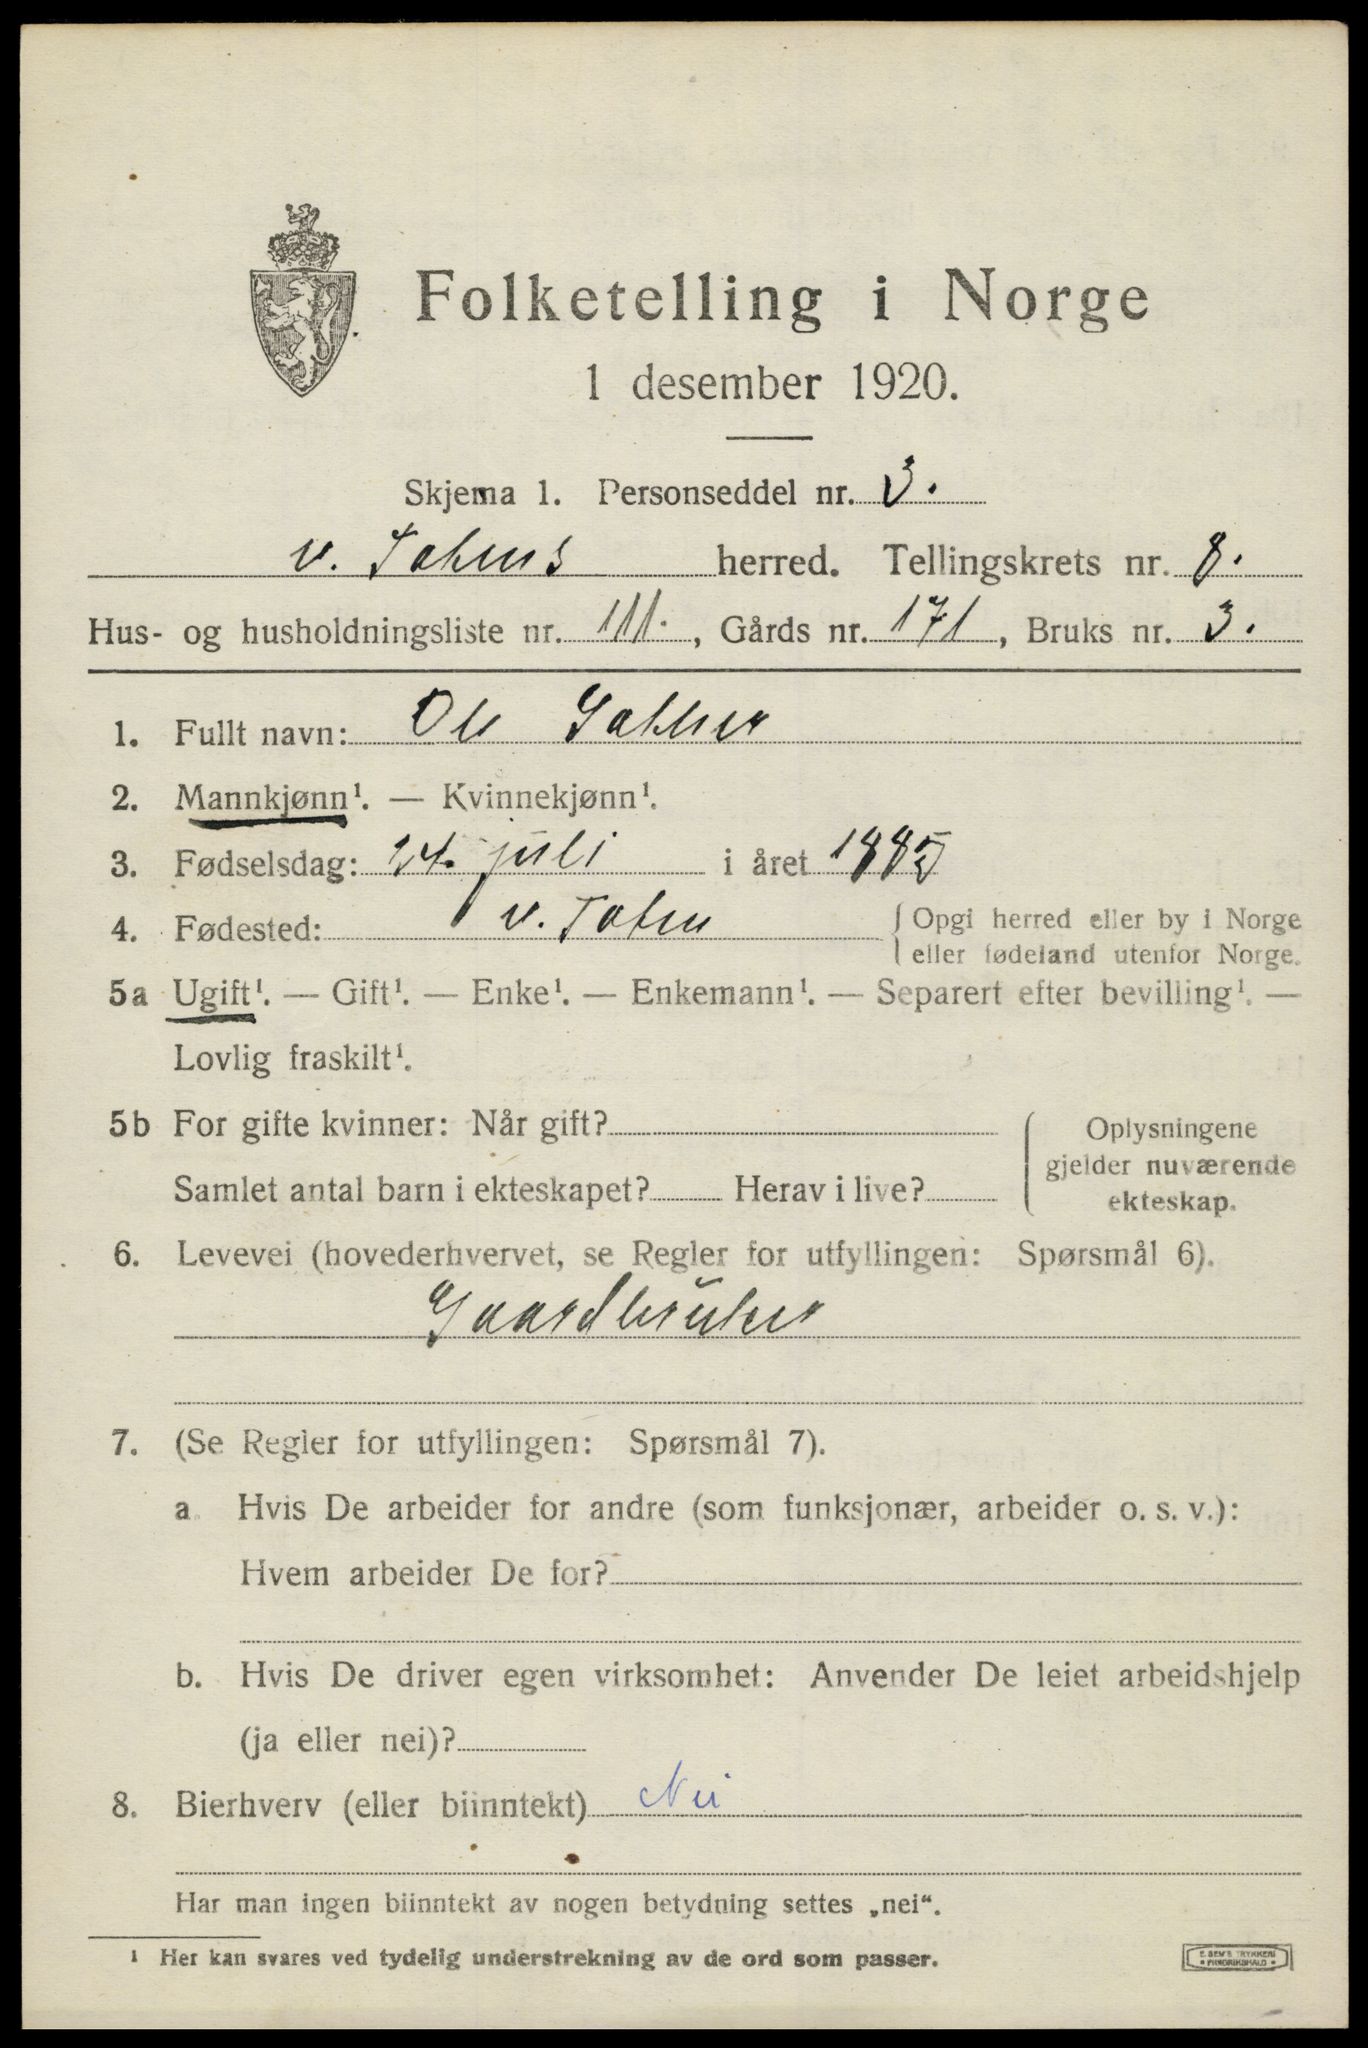 Folketelling i Norge
1 desember 1920.
Skjema 1. Personseddel nr. 3.
v. Totens herred. Tellingskrets nr. 8.
Hus- og husholdningsliste nr. 111., Gårds nr. 171, Bruks nr. 3.
1. Fullt navn: Ole
2. Mannkjønn¹. — Kvinnekjønn¹.
3. Fødselsdag: 24. juli i året 1885
4. Fødested: v. Toten { Opgi herred eller by i Norge
eller fødeland utenfor Norge.
5a Ugift¹. — Gift¹. — Enke¹. — Enkemann¹. — Separert efter bevilling¹. —
Lovlig fraskilt¹.
5b For gifte kvinner: Når gift?
Samlet antal barn i ekteskapet? Herav i live?
Oplysningene
gjelder nuværende
ekteskap.
6. Levevei (hovederhvervet, se Regler for utfyllingen: Spørsmål 6).
Gaardbruker
7. (Se Regler for utfyllingen: Spørsmål 7).
a. Hvis De arbeider for andre (som funksjonær, arbeider o. s. v.):
Hvem arbeider De for?
b. Hvis De driver egen virksomhet: Anvender De leiet arbeidshjelp
(ja eller nei)?
8. Bierhverv (eller biinntekt) Nei
Har man ingen biinntekt av nogen betydning settes „nei“.
¹ Her kan svares ved tydelig understrekning av de ord som passer.
E. SEM'S TRYKKERI
FREDRIKSHALD